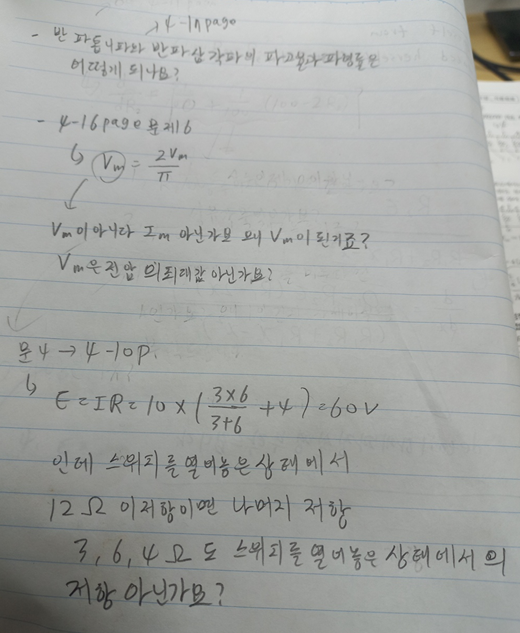 → 4-17 page
- 반파톱니파와 반파삼각파의 파고율과 파형률은
어떻게 되나요?
- 4-16 page 문제 6
↳ Vm = 2Vm/π
Vm이 아니라 Im 아닌가요 왜 Vm이 된거죠?
Vm은 전압의 최대값 아닌가요?
문 4 → 4-10p.
↳ E = IR = 10 × (3×6/3+6 + 4) = 60V
인데 스위치를 열어놓은 상태에서
12Ω 이 저항이면 나머지 저항
3, 6, 4 Ω 도 스위치를 열어놓은 상태에서의
저항 아닌가요?